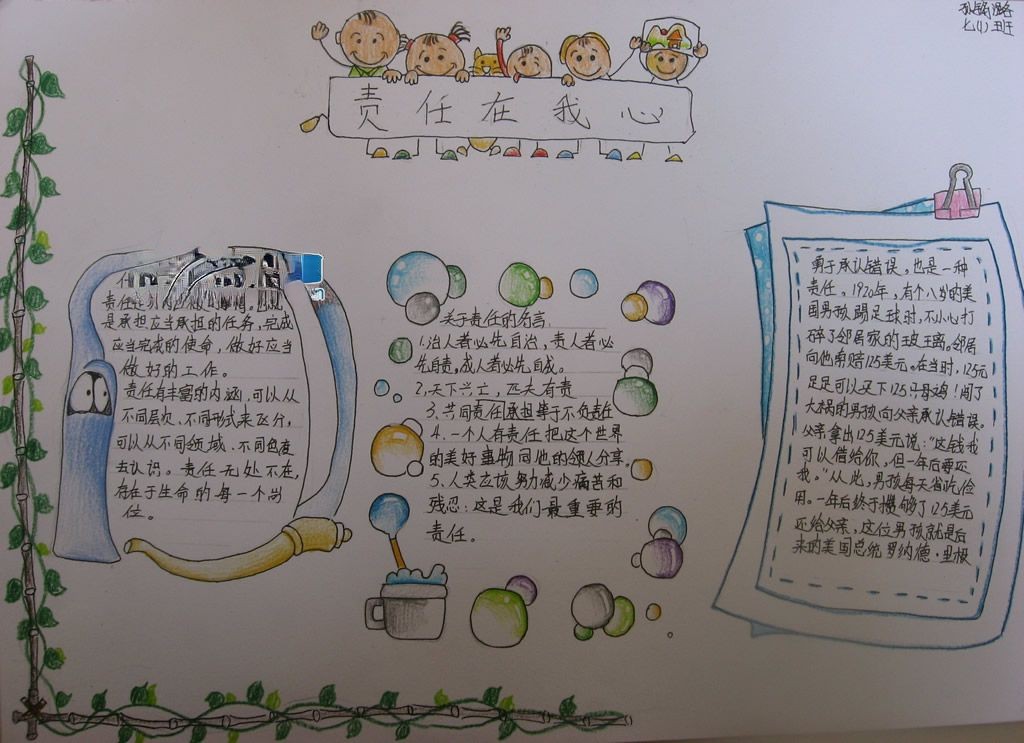 七(1)班
责任在我心
责任
是承担应当承担的任务,完成
应当完成的使命,做好应当
做好的工作。
责任有丰富的内涵,可以从
不同层次、不同形式来区分,
可以从不同领域、不同角度
去认识。责任无处不在,
存在于生命的每一个岗
位。
关于责任的名言
1.治人者必先自治,责人者必
先自责,成人者必先自成。
2.天下兴亡,匹夫有责
3.共同责任承担等于不负责任
4.一个人有责任把这个世界
的美好事物同他的邻人分享。
5.人类应该努力减少痛苦和
残忍:这是我们最重要的
责任。
勇于承认错误,也是一种
责任。1920年,有个八岁的美
国男孩踢足球时,不小心打
碎了邻居家的玻璃。邻居
向他索赔125美元。在当时,125元
足足可以买下125只母鸡!闯了
大祸的男孩向父亲承认错误。
父亲拿出125美元说:"这钱我
可以借给你,但一年后要还
我。"从此,男孩每天省吃俭
用。一年后终于攒够了125美元
还给父亲,这位男孩就是后
来的美国总统罗纳德·里根